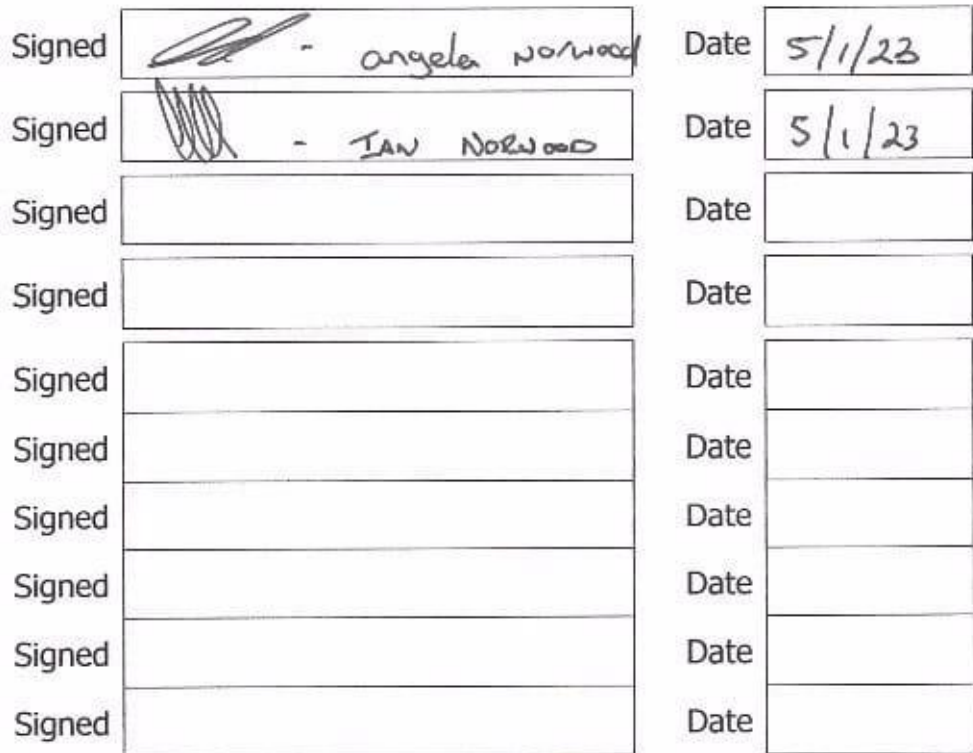 Signed - angela Norwood Date 5/1/23
Signed - IAN NORWOOD Date 5/1/23
Signed Date
Signed Date
Signed Date
Signed Date
Signed Date
Signed Date
Signed Date
Signed Date